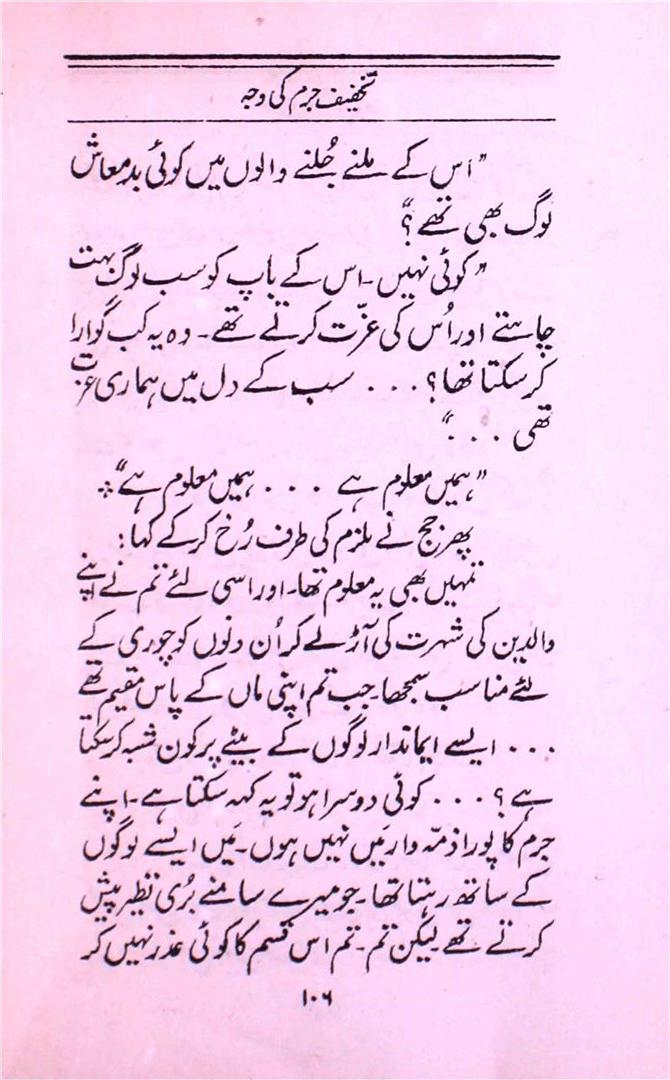 تخفیف جرم کی وجہ
”اس کے ملنے جُلنے والوں میں کوئی بدمعاش
لوگ بھی تھے؟“
”کوئی نہیں۔ اس کے باپ کو سب لوگ بہت
چاہتے اور اُس کی عزّت کرتے تھے۔ وہ یہ کب گوارا
کر سکتا تھا؟ ... سب کے دل میں ہماری عزت
تھی ...“
”ہمیں معلوم ہے ... ہمیں معلوم ہے“؞
پھر جج نے ملزم کی طرف رُخ کر کے کہا:
تمہیں بھی یہ معلوم تھا۔ اور اسی لئے تم نے اپنے
والدین کی شہرت کی آڑ لے کر اُن دنوں کو چوری کے
لئے مناسب سمجھا جب تم اپنی ماں کے پاس مقیم تھے
... ایسے ایماندار لوگوں کے بیٹے پر کون شبہ کر سکتا
ہے؟ ... کوئی دوسرا ہو تو یہ کہہ سکتا ہے۔ اپنے
جرم کا پورا ذمّہ دار مَیں نہیں ہوں۔ مَیں ایسے لوگوں
کے ساتھ رہتا تھا۔ جو میرے سامنے بُری نظیر پیش
کرتے تھے لیکن تم۔ تم اس قسم کا کوئی عذر نہیں کر
۱۰۶